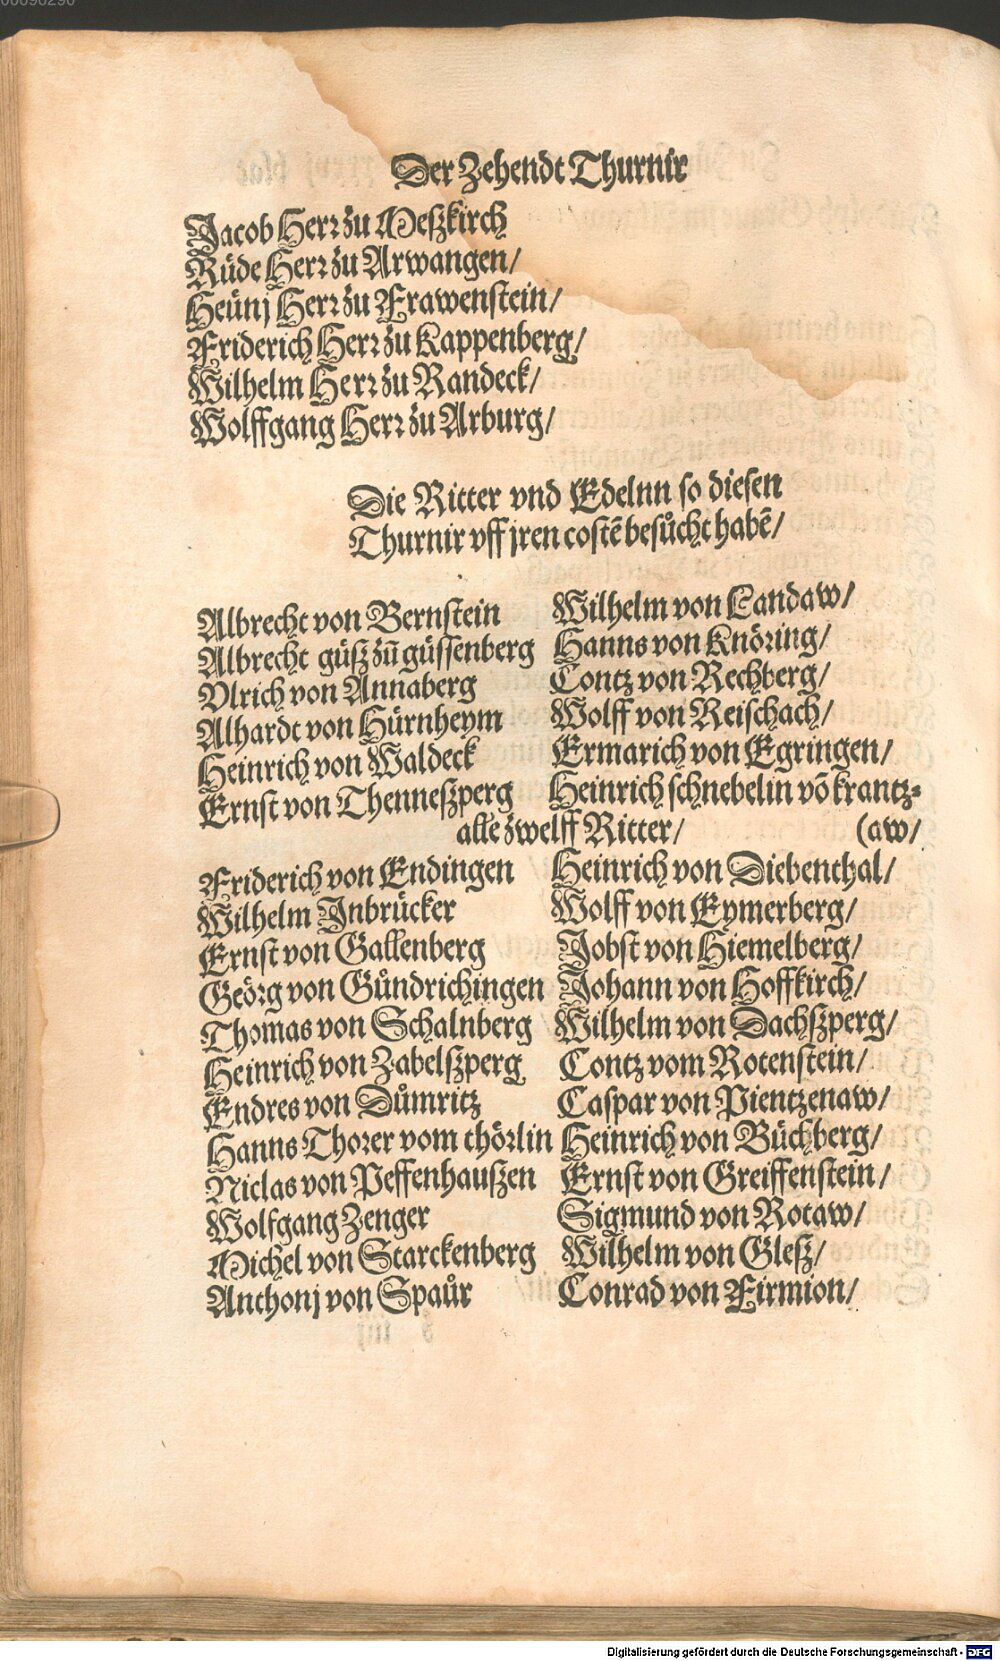 Der Zehendt Thurnir
Jacob Herr zu Meßkirch
Rüde Herr zu Arwangen/
Heünj Herr zu Frawenstein/
Friderich Herr zu Kappenberg/
Wilhelm Herr zu Randeck/
Wolffgang Herr zu Arburg/
Die Ritter vnd Edelnn so diesen
Thurnir vff jren costē besůcht habē/
Albrecht von Bernstein
Albrecht güß zů güssenberg
Vlrich von Annaberg
Alhardt von Hürnheym
Heinrich von Waldeck
Ernst von Thenneßperg
Wilhelm von Landaw/
Hanns von Knöring/
Contz von Rechberg/
Wolff von Reischach/
Ermarich von Egringen/
Heinrich schnebelin vō krantz=
(aw/
alle zwelff Ritter/
Friderich von Endingen
Wilhelm Inbrücker
Ernst von Gallenberg
Geörg von Gündrichingen
Thomas von Schalnberg
Heinrich von Zabelßperg
Endres von Důmritz
Hanns Thorer vom thörlin
Niclas von Peffenhaußen
Wolfgang Zenger
Michel von Starckenberg
Anthonj von Spaůr
Heinrich von Diebenthal/
Wolff von Eymerberg/
Jobst von Hiemelberg/
Johann von Hoffkirch/
Wilhelm von Dachßperg/
Contz vom Rotenstein/
Caspar von Pientzenaw/
Heinrich von Büchberg/
Ernst von Greiffenstein/
Sigmund von Rotaw/
Wilhelm von Gleß/
Conrad von Firmion/
Digitalisierung gefördert durch die Deutsche Forschungsgemeinschaft - DFG